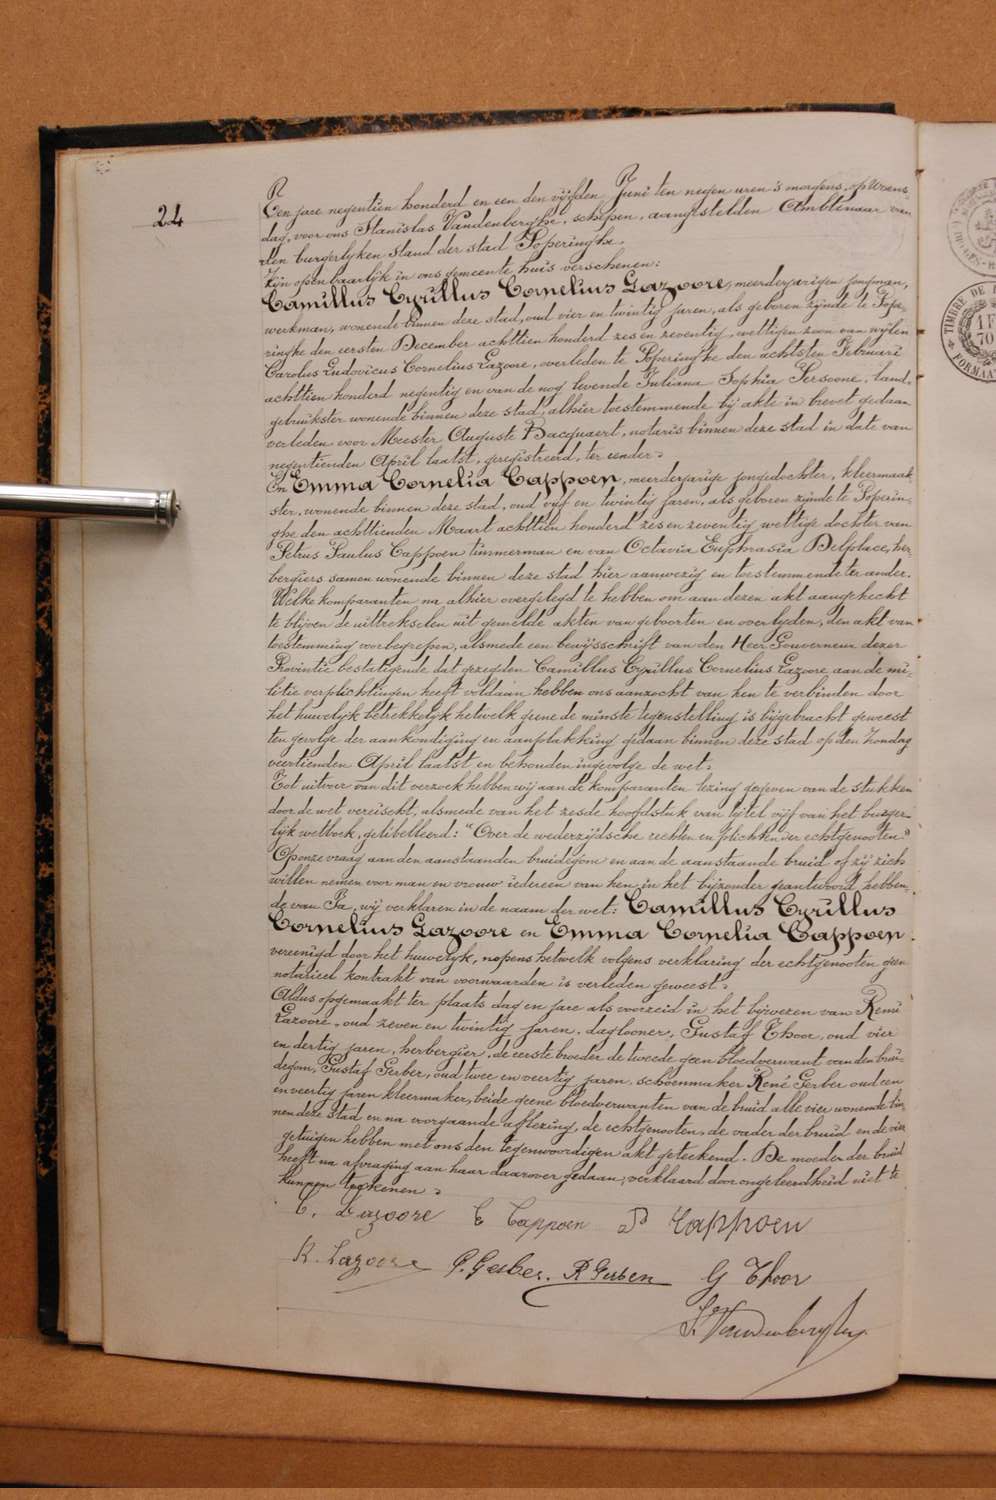 24
Een jare negentien honderd en een den vijfden Juni ten negen uren 's morgens, op Woens-
dag, voor ons Stanislas Vandenberghe, schepen, aangestelden Ambtenaar van
den burgerlyken stand der stad Poperinghe.
Zijn openbaarlyk in ons gemeente huis verschenen:
Camillus Cyrillus Cornelius Lazoore, meerderjarigen jongman,
werkman, wonende binnen deze stad, oud vier en twintig jaren, als geboren zijnde te Pope-
ringhe den eersten December achttien honderd zes en zeventig, wettigen zoon van wijlen
Carolus Ludovicus Cornelius Lazoore, overleden te Poperinghe den achtsten Februari
achttien honderd negentig en van de nog levende Juliana Sophia Persoone, land-
gebruikster wonende binnen deze stad, alhier toestemmende bij akte in brevet gedaan
verleden voor Meester Auguste Bacquaert, notaris binnen deze stad in date van
negentienden April laatst, geregistreerd, ter eender.
En Emma Cornelia Cappoen, meerderjarige jongedochter, kleermaak-
ster, wonende binnen deze stad, oud vijf en twintig jaren, als geboren zijnde te Poperin-
ghe den achttienden Maart achttien honderd zes en zeventig wettige dochter van
Petrus Paulus Cappoen timmerman en van Octavia Euphrasia Delplace, her-
bergiers samen wonende binnen deze stad hier aanwezig en toestemmende ter ander.
Welke komparanten na alhier overgelegd te hebben om aan dezen akt aangehecht
te blijven de uittrekselen uit gemelde akten van geboorten en overlyden, den akt van
toestemming voorbegrepen, alsmede een bewijsschrift van den Heer Gouverneur dezer
Provintie bestatigende dat gezegden Camillus Cyrillus Cornelius Lazoore aan de mi-
litie verplichtingen heeft voldaan hebben ons aanzocht van hen te verbinden door
het huwelijk betrekkelyk hetwelk geene de minste tegenstelling is bijgebracht geweest
ten gevolge der aankondiging en aanplakking gedaan binnen deze stad op den Zondag
veertienden April laatst en behouden ingevolge de wet.
Tot uitvoer van dit verzoek hebben wij aan de komparanten lezing gegeven van de stukken
door de wet vereischt, alsmede van het zesde hoofdstuk van tytel vijf van het burger-
lijk wetboek, gelibelleerd: "Over de wederzijdsche rechten en plichten der echtgenooten."
Op onze vraag aan den aanstaanden bruidegom en aan de aanstaande bruid of zij zich
willen nemen voor man en vrouw iedereen van hen in het bijzonder geantwoord hebben-
de van Ja, wij verklaren in de naam der wet: Camillus Cyrillus
Cornelius Lazoore en Emma Cornelia Cappoen
vereenigd door het huwelyk, nopens hetwelk volgens verklaring der echtgenooten geen
notarieel kontrakt van voorwaarden is verleden geweest.
Aldus opgemaakt ter plaats dag en jare als voorzeid in het bijwezen van Remi
Lazoore, oud zeven en twintig jaren, daglooner, Gustaf Thoor, oud vier
en dertig jaren, herbergier, de eerste broeder de tweede geen bloedverwant van den brui-
degom, Gustaf Gerber, oud twee en veertig jaren, schoenmaker René Gerber oud een
en veertig jaren kleermaker, beide geene bloedverwanten van de bruid alle vier wonende bin-
nen deze stad en na voorgaande aflezing, de echtgenooten, de vader der bruid en de vier
getuigen hebben met ons den tegenwoordigen akt geteekend. De moeder der bruid
heeft na afvraging aan haar daarover gedaan, verklaard door ongeleerdheid niet te
kunnen teekenen.
C. Lazoore E Cappoen P Cappoen
R. Lazoore G. Gerber. R Gerber G Thoor
S. Vandenberghe
TIMBRE DE
1F
70
FORMAAT